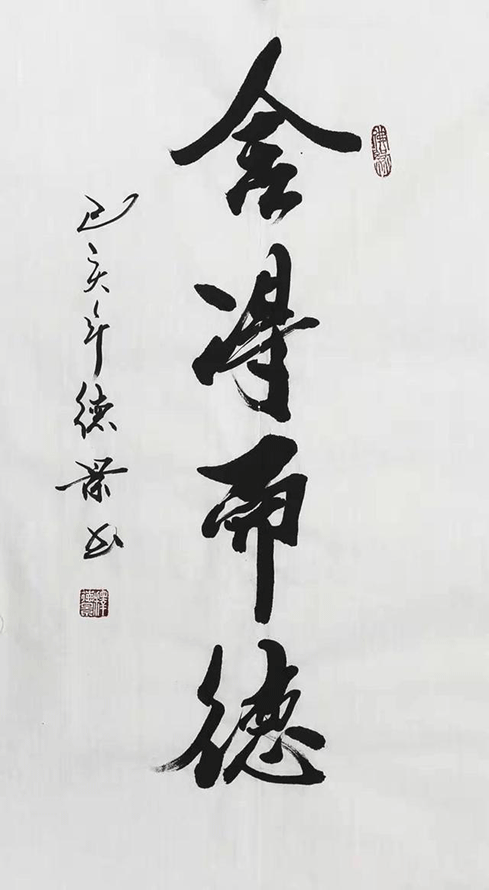 舍得而德
己亥年德景书